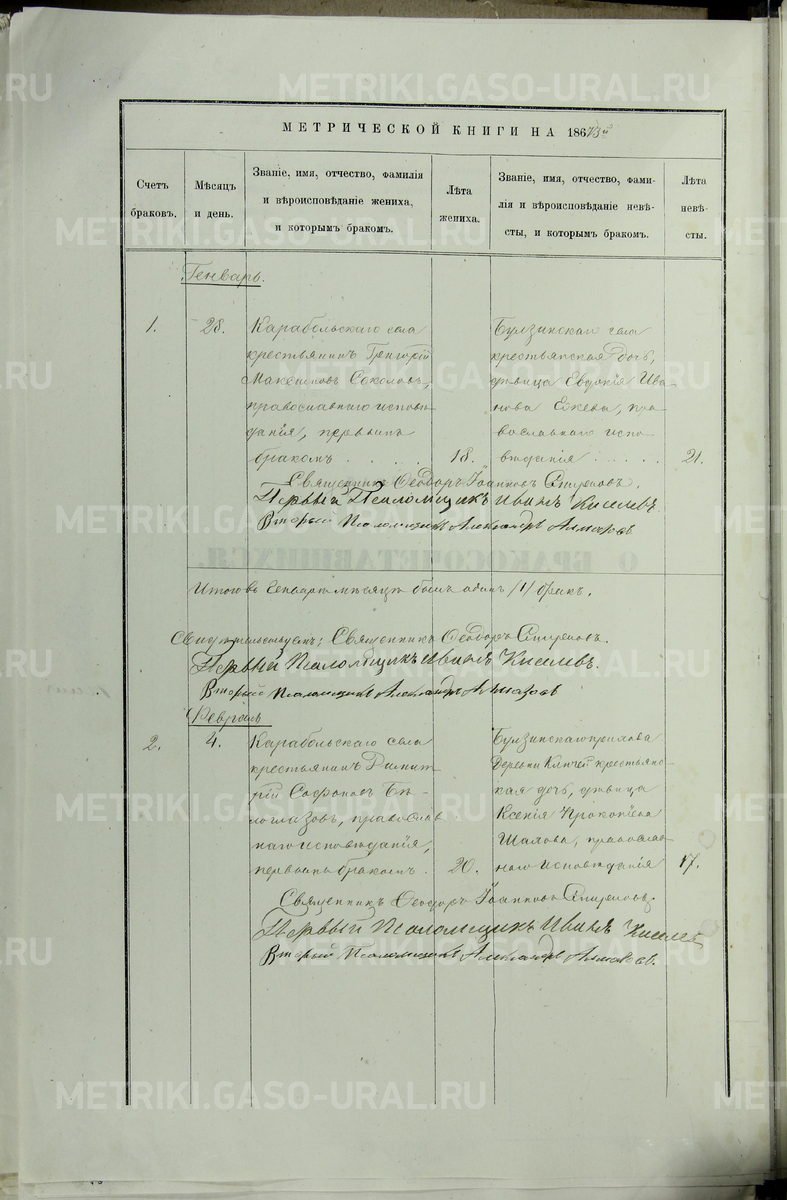 МЕТРИЧЕСКОЙ КНИГИ НА 1873й
Счетъ браковъ.
Мѣсяцъ и день.
Званіе, имя, отчество, фамилія
и вѣроисповѣданіе жениха,
и которымъ бракомъ.
Лѣта жениха.
Званіе, имя, отчество, фами-
лія и вѣроисповѣданіе невѣ-
сты, и которымъ бракомъ.
Лѣта невѣ-
сты.
Генварь.
1.
28.
Карабольскаго села
крестьянинъ Григорій
Соколовъ,
православнаго исповѣ-
данія, первымъ
бракомъ
18.
Булзинскаго села
крестьянская дочь,
дѣвица Евдокія Ива-
нова, пра-
вославнаго испо-
вѣданія
21.
Священникъ Ѳеодоръ Іоанновъ
Первый Псаломщикъ Иванъ Киселевъ.
Второй Псаломщикъ Александръ
О БРАКОСОЧЕТАВШИХСЯ.
Итого въ мѣсяцѣ былъ одинъ /1/ бракъ.
Свидѣтельствуемъ: Священникъ Ѳеодоръ
Первый Псаломщикъ Иванъ Киселевъ.
Второй Псаломщикъ Александръ
Февраль
2.
4.
Карабольскаго села
крестьянинъ Димит-
рій Бѣ-
логлазовъ, православ-
наго исповѣданія,
первымъ бракомъ
20.
Булзинскаго прихода
деревни крестьянс-
кая дочь, дѣвица
Ксенія Прокопьева
православ-
наго исповѣданія
17.
Священникъ Ѳеодоръ Іоанновъ
Первый Псаломщикъ Иванъ Киселев
Второй Псаломщикъ Александръ
METRIKI.GASO-URAL.RU